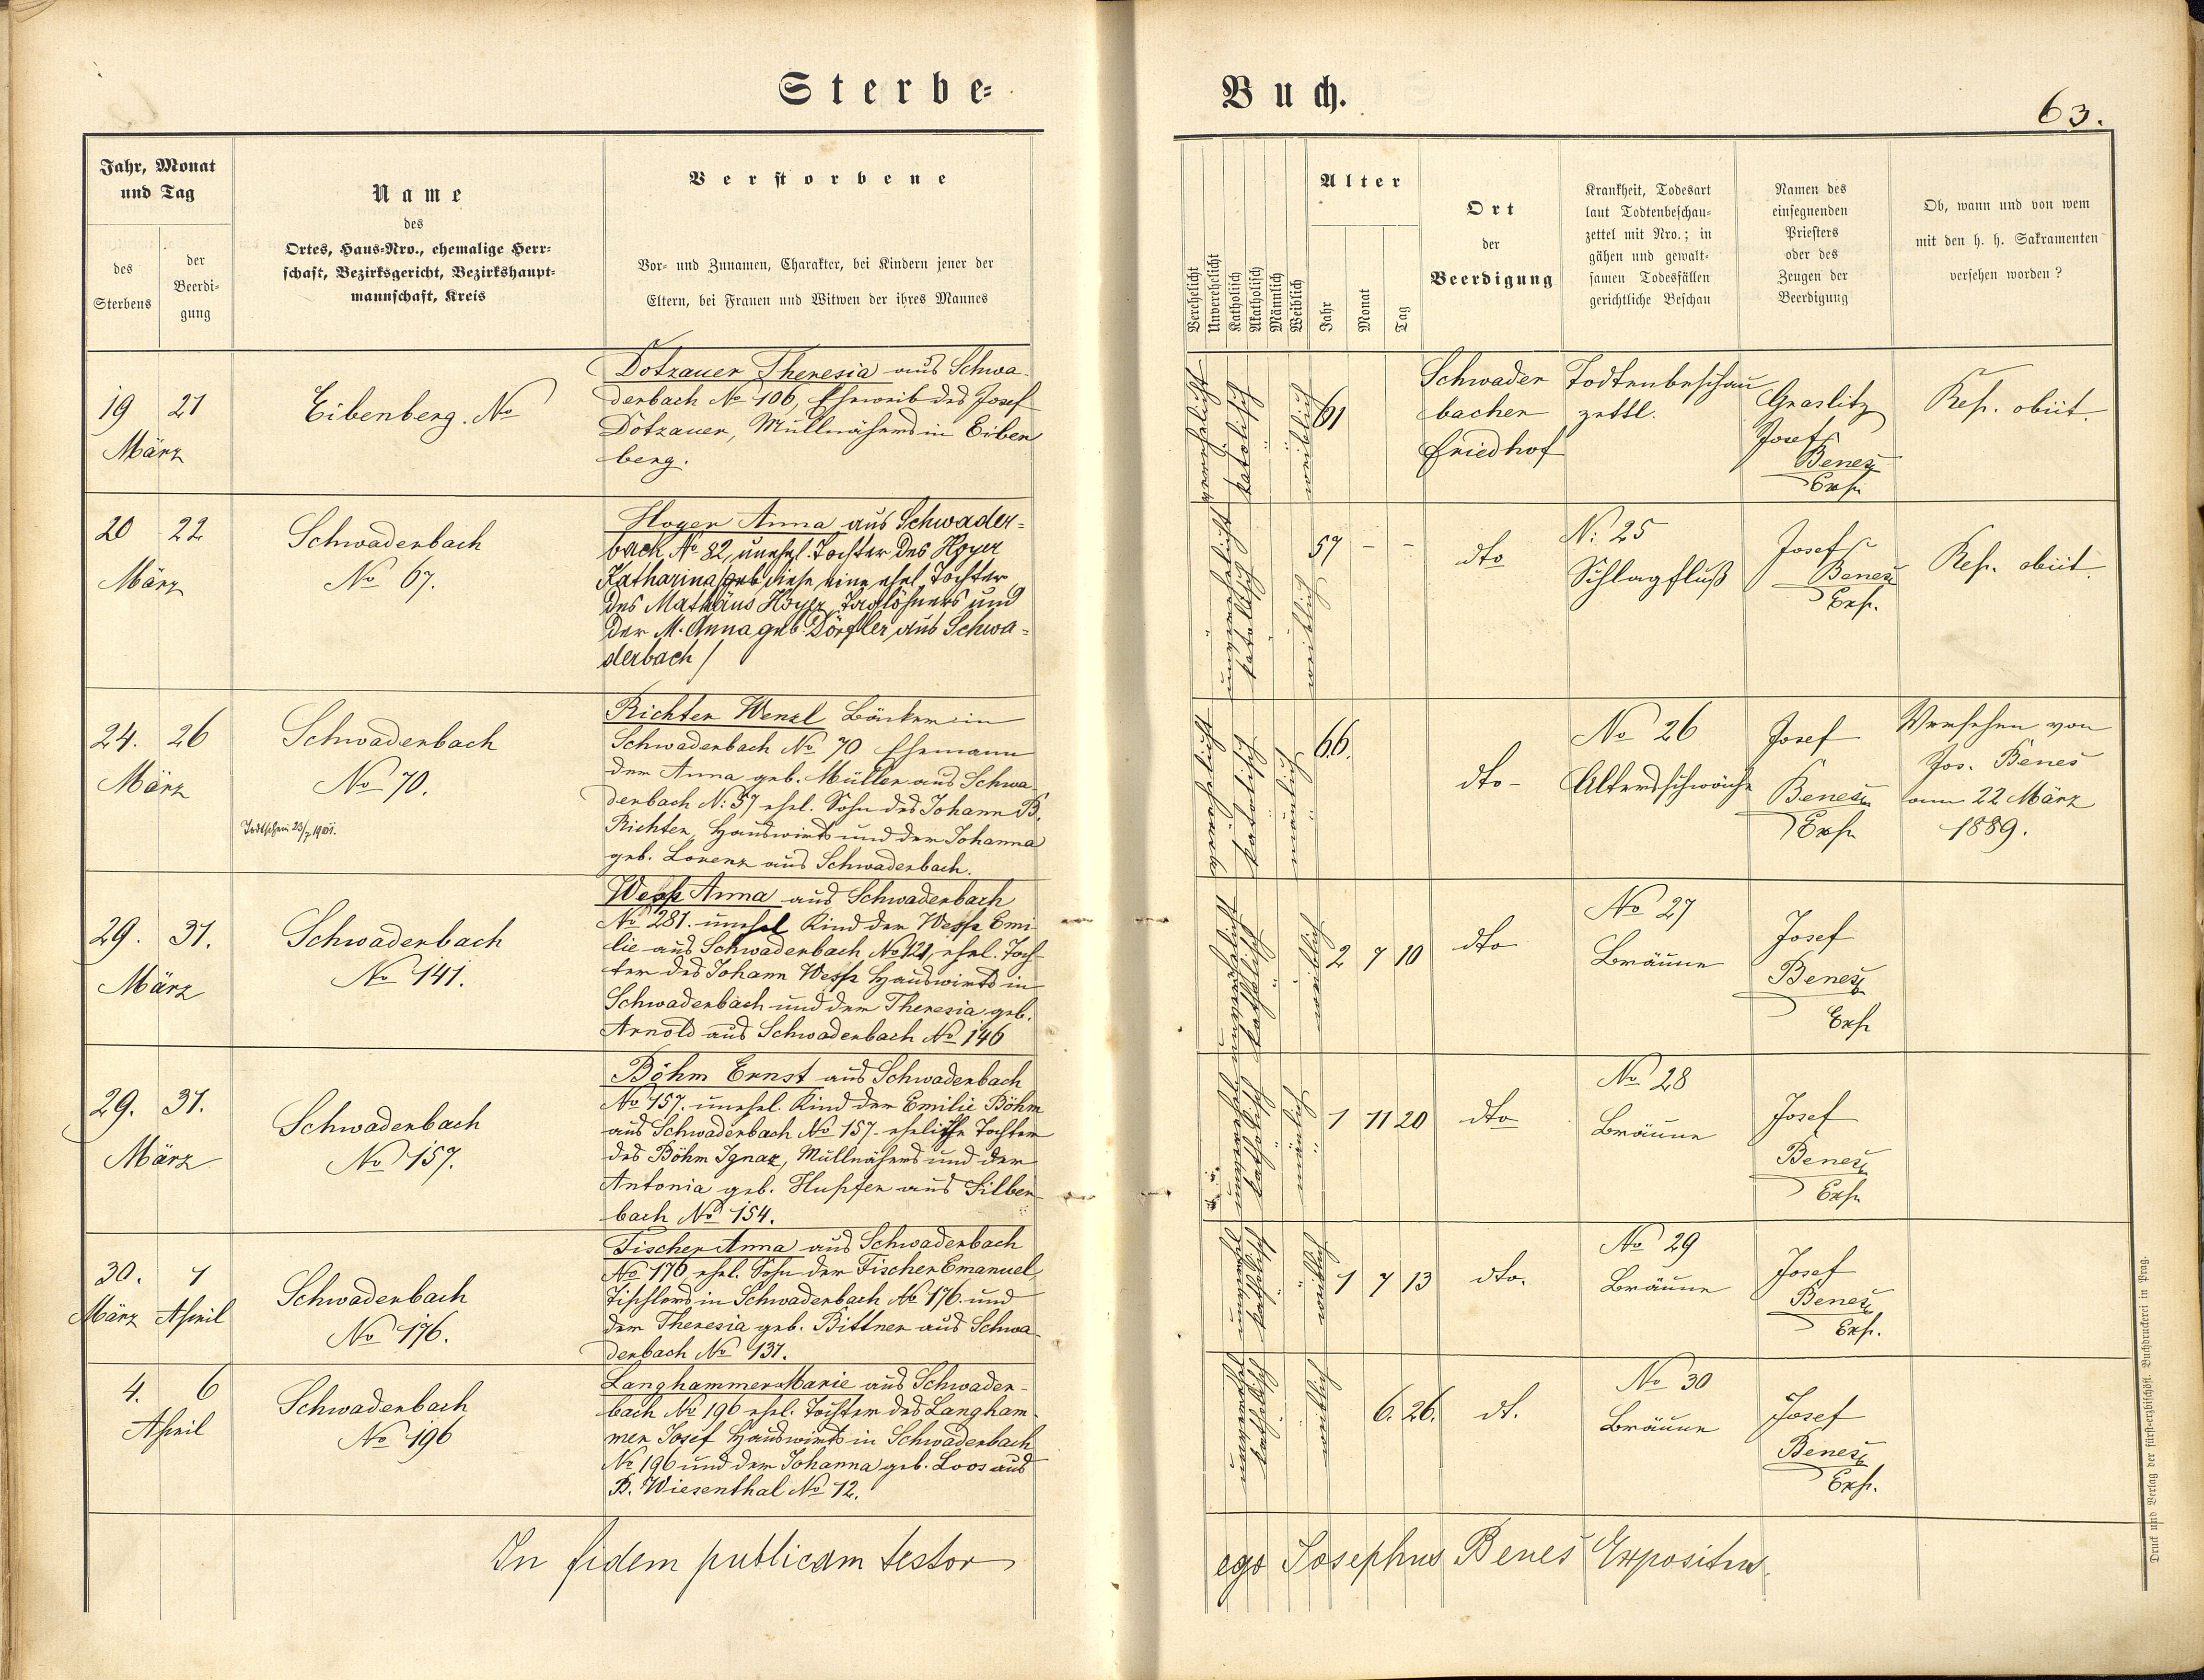 Sterbe-
Buch.
63.
Jahr, Monat
und Tag
des
Sterbens
der
Beerdi-
gung
Name
des
Ortes, Haus-Nro., ehemalige Herr-
schaft, Bezirksgericht, Bezirkshaupt-
mannschaft, Kreis
Verstorbene
Vor- und Zunamen, Charakter, bei Kindern jener der
Eltern, bei Frauen und Witwen der ihres Mannes
Verehelicht
Unverehelicht
Katholisch
Akatholisch
Männlich
Weiblich
Alter
Jahr
Monat
Tag
Ort
der
Beerdigung
Krankheit, Todesart
laut Todtenbeschau-
zettel mit Nro.; in
gähen und gewalt-
samen Todesfällen
gerichtliche Beschau
Namen des
einsegnenden
Priesters
oder des
Zeugen der
Beerdigung
Ob, wann und von wem
mit den h. h. Sakramenten
versehen worden?
19 21
März
Eibenberg. No
Dotzauer Theresia aus Schwa-
derbach No 106, Eheweib des Josef
Dotzauer, Müllnähers in Eiben
berg.
verehelicht
katolisch
weiblich
61
Schwader
bacher
Friedhof
Todtenbeschau
zettl.
Graslitz
Josef
Beneš
Exp.
Rep. obiit.
20 22
März
Schwaderbach
No 67.
Hoyer Anna aus Schwader-
bach No 82, unehel. Tochter des Hoyer
Katharina /geb diese eine ehel Tochter
des Mathäus Hoyer, Taglöhners und
der M. Anna geb. Dörfler aus Schwa-
derbach/
unverehelicht
katolisch
weiblich
57 - -
dto
N: 25
Schlagfluß
Josef
Beneš
Exp.
Rep. obiit.
24. 26
März
Schwaderbach
No 70.
Todtschein 23/7 1901.
Richter Wenzl Bäcker in
Schwaderbach No 70 Ehemann
der Anna geb. Müller aus Schwa
derbach N: 57 ehel. Sohn des Johann B.
Richter, Hauswirts und der Johanna
geb. Lorenz aus Schwaderbach.
verehelicht
katolisch
mänlich
66.
dto-
No 26
Altersschwäche
Josef
Beneš
Exp.
Versehen von
Jos. Beneš
am 22 März
1889.
29. 31.
März
Schwaderbach
No 141.
Wesp Anna aus Schwaderbach
No 281. unehel Kind der Wesp Emi-
lie aus Schwaderbach No 121, ehel. Toch-
ter des Johann Wesp Hauswirts in
Schwaderbach und der Theresia geb.
Arnold aus Schwaderbach No 146
unverehelicht
katholisch
weiblich
2 7 10
dto
No 27
Bräune
Josef
Beneš
Exp
29. 31.
März
Schwaderbach
No 157.
Böhm Ernst aus Schwaderbach
No 157. unehel. Kind der Emilie Böhm
aus Schwaderbach No 157. eheliche Tochter
des Böhm Ignaz, Müllnähers und der
Antonia geb. Hupfer aus Silber-
bach No 154.
unverehel
katholisch
mänlich
1 11 20
dto
No 28
Bräune
Josef
Beneš
Exp.
30. 1
März April
Schwaderbach
No 176.
Fischer Anna aus Schwaderbach
No 176 ehel. Sohn der Fischer Emanuel
Tischlers in Schwaderbach No 176. und
der Theresia geb. Bittner aus Schwa
derbach No 137.
unverehel
katholisch
weiblich
1 7 13
dto.
No 29
Bräune
Josef
Beneš
Exp.
4. 6
April
Schwaderbach
No 196
Langhammer Marie aus Schwader-
bach No 196 ehel. Tochter des Langham-
mer Josef Hauswirts in Schwaderbach
No 196 und der Johanna geb. Loos aus
B. Wiesenthal No 12.
unverehel
katholisch
weiblich
6. 26.
dt.
No 30
Bräune
Josef
Beneš
Exp.
In fidem publicam testor
ego Josephus Beneš Expositus.
Druck und Verlag der fürst-erzbischöfl. Buchdruckerei in Prag.